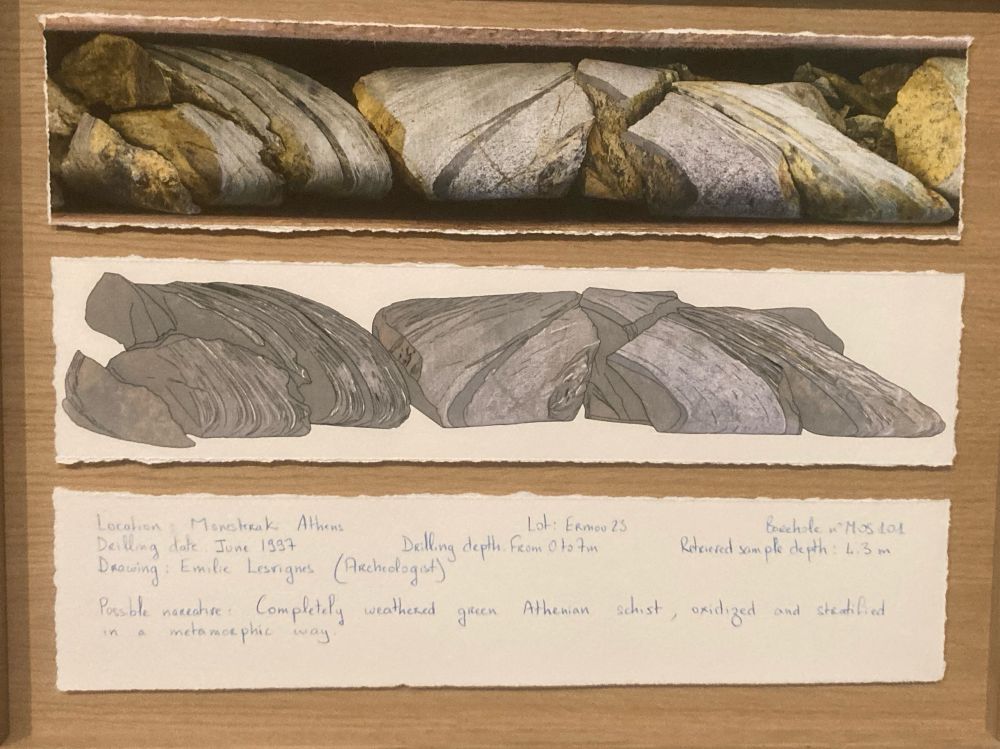 Location : Monsterak Athens Lot: Ermou 25 Borehole n° MOS 101
Drilling date : June 1997 Drilling depth : From 0 to 7m Retrieved sample depth : 4.3 m
Drawing : Emilie Lesvignes (Archeologist)
Possible narrative : Completely weathered green Athenian schist, oxidized and stratified
in a metamorphic way.